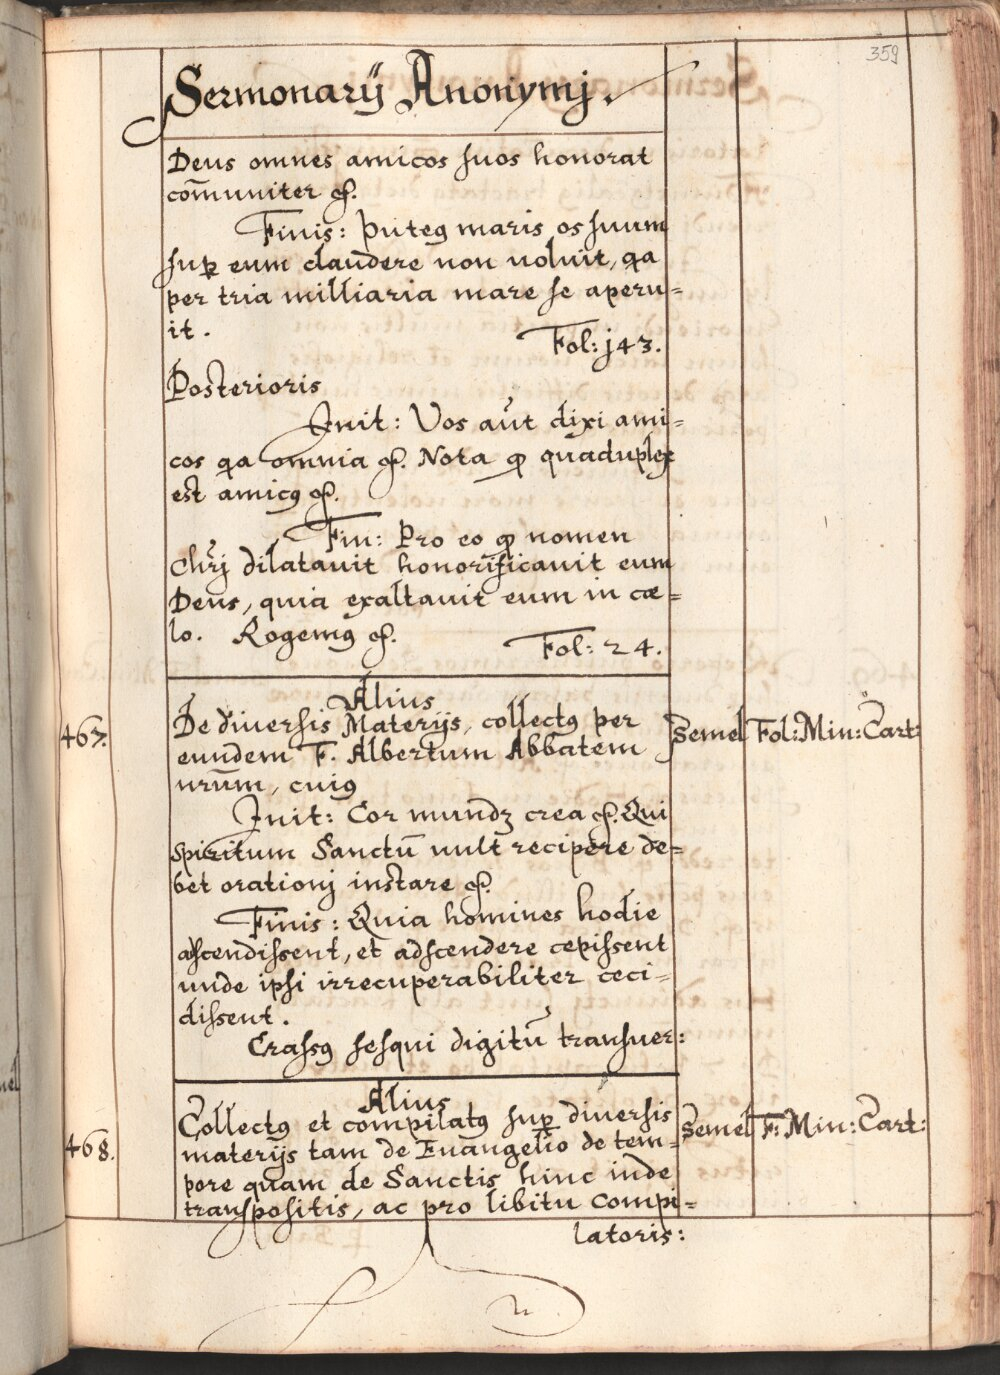 359
Sermonarij Anonymj.
Deus omnes amicos suos honorat
com̃uniter &.
Finis: puteꝯ maris os suum
suꝑ eum claudere non uoluit, qa
per tria milliaria mare se aperu=
it.
Fol: j43.
Posterioris
Init: Vos aut̃ dixi ami=
cos qa omnia &. Nota ꝙ quaduplex
est amicꝯ &.
Fin: Pro eo ꝙ nomen
Chrj̃ dilatauit honorificauit eum
Deus, quia exaltauit eum in cæ=
lo. Rogemꝯ &.
Fol: 24.
Alius
467. De diuersis Materijs, collectꝯ per Semel Fol: Min: Cart:
eundem F. Albertum Abbatem
nrũm, cuiꝯ
Init: Cor mundꝫ crea &. Qui
spiritum Sanctũ uult recipere de=
bet orationj instare &.
Finis: Quia homines hodie
ascendissent, et adscendere cepissent
unde ipsi irrecuperabiliter ceci=
dissent.
Crassꝯ sesqui digitũ transuer:
Alius
468. Collectꝯ et compilatꝯ suꝑ diuersis Semel F: Min: Cart:
materijs tam de Euangelio de tem=
pore quam de Sanctis hinc inde
transpositis, ac pro libitu compi=
latoris: